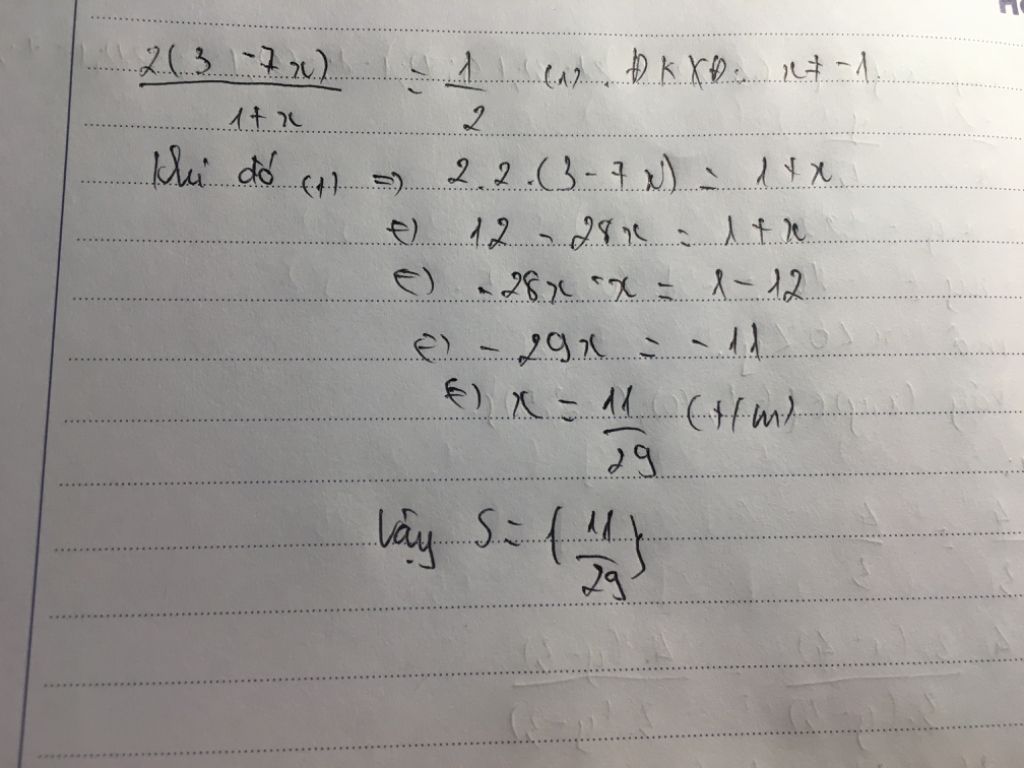 2(3 - 7x) / 1 + x = 1/2 (1). ĐKXĐ: x ≠ -1
Khi đó (1) => 2.2.(3 - 7x) = 1 + x
<=> 12 - 28x = 1 + x
<=> -28x - x = 1 - 12
<=> - 29x = - 11
<=> x = 11/29 (t/m)
Vậy S = {11/29}